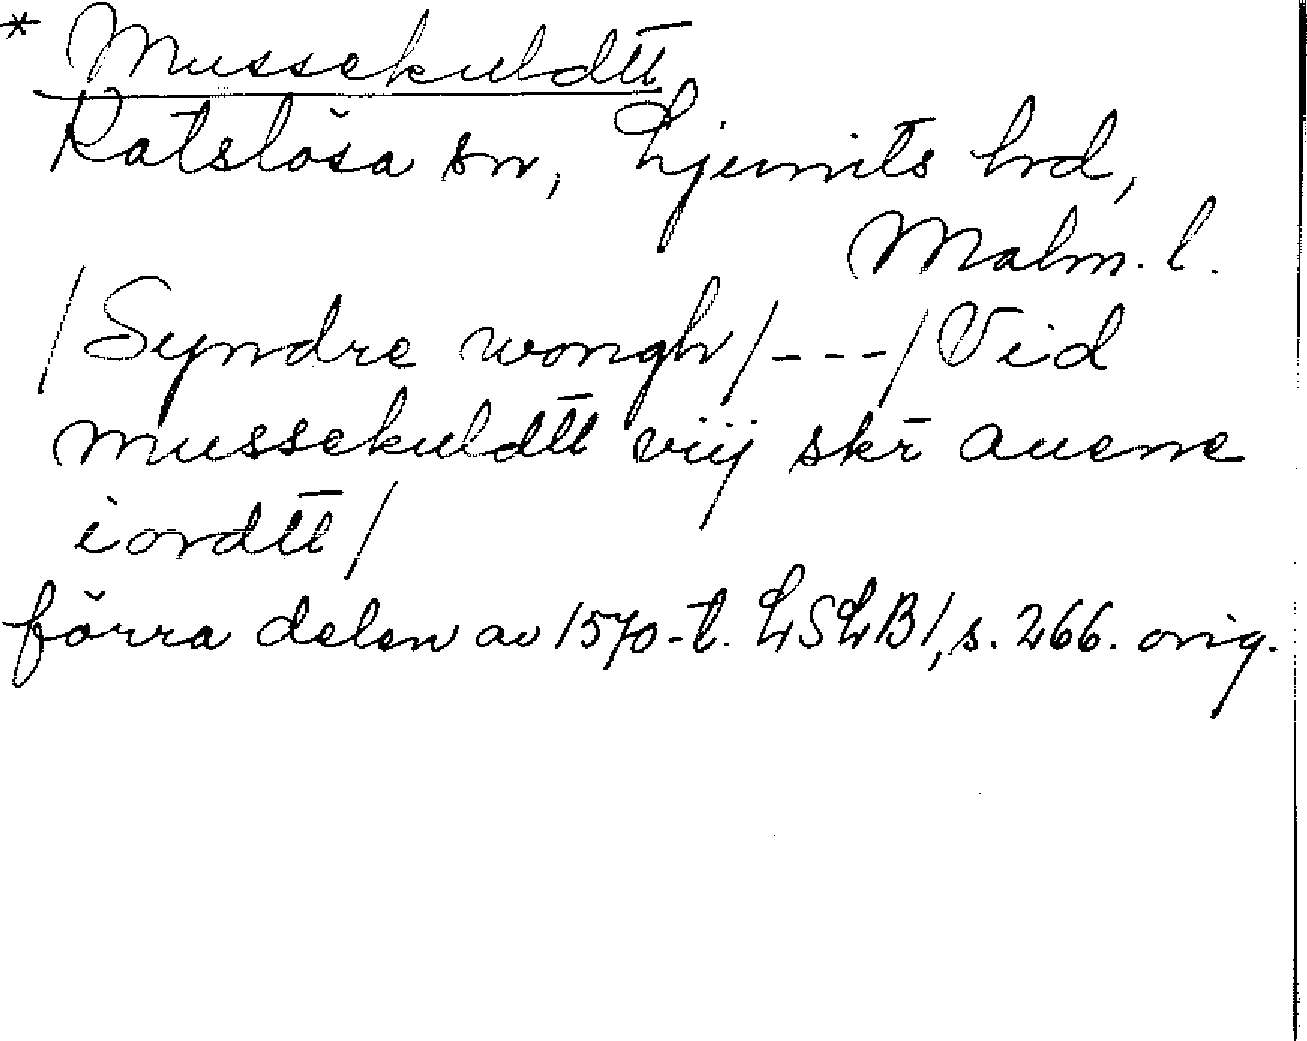 * Mussekuldtt̅
Katslösa sn, Ljunits hrd,
Malm. l.
/Syndre wongh/---/Vid
mussekuldtt̅ viij skr̄ auene
iordtt̅/
förra delen av 1570-t. LSLB1, s. 266. orig.